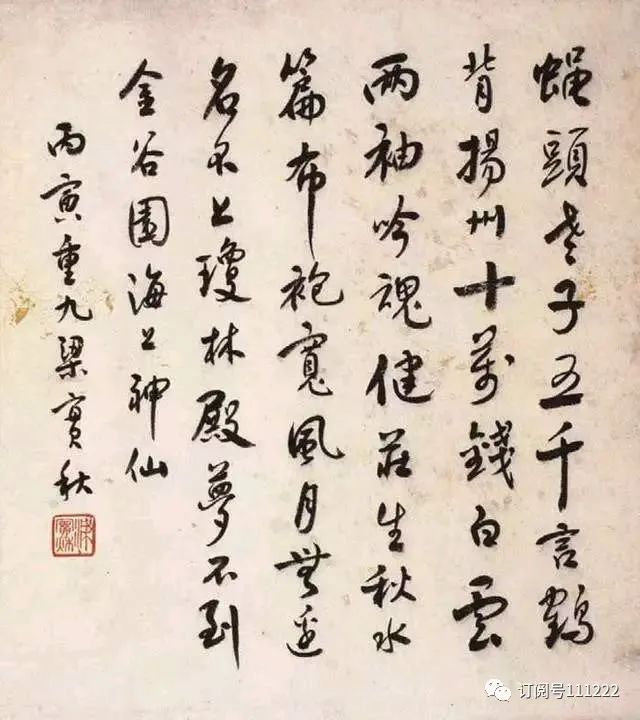 蠅頭老子五千言鶴
背揚州十萬錢白雲
兩袖吟魂健莊生秋水
篇布袍寬風月無邊
名不上瓊林殿夢不到
金谷園海上神仙
丙寅重九梁實秋
订阅号111222